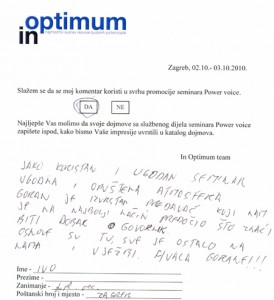 in optimum
Zagreb, 02.10.- 03.10.2010.
Slažem se da se moj komentar koristi u svrhu promocije seminara Power voice.
DA NE
Najljepše Vas molimo da svoje dojmove sa službenog dijela seminara Power voice
zapišete ispod, kako bismo Vaše impresije uvrstili u katalog dojmova.
In Optimum team
JAKO KORISTAN I UGODAN SEMINAR
UGODNA I OPUŠTENA ATMOSFERA
GORAN JE IZVRSTAN PREDAVAČ KOJI NAM
JE NA NAJBOLJI NAČIN PREDOČIO ŠTO ZNAČI
BITI DOBAR GOVORNIK
OSNOVE SU TU, SVE JE OSTALO NA
NAMA I VJEŽBI. HVALA GORANE!!!
Ime - IVO
Prezime -
Zanimanje -
Poštanski broj i mjesto - ZAGREB